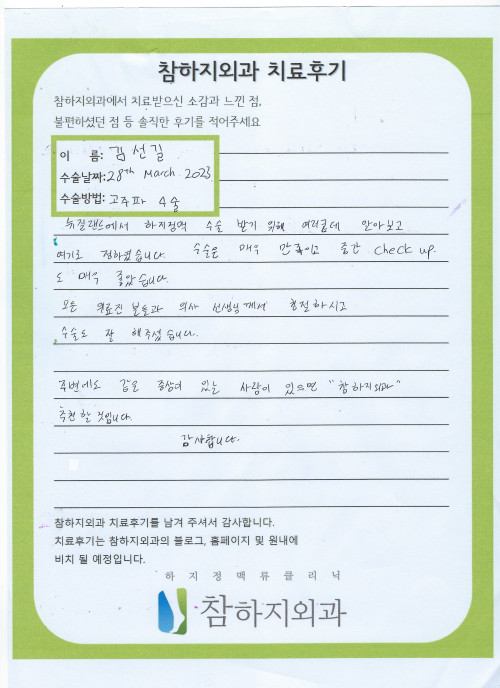 참하지외과 치료후기
참하지외과에서 치료받으신 소감과 느낀 점,
불편하셨던 점 등 솔직한 후기를 적어주세요
이 름: 김선길
수술날짜: 28th March 2023
수술방법: 고주파 수술
뉴질랜드에서 하지정맥 수술 받기 위해 여러군데 알아보고
여기로 정하였습니다. 수술은 매우 만족이고 중간 check up.
도 매우 좋았습니다.
모든 의료진 분들과 의사 선생님께서 친절하시고
수술도 잘 해주셨습니다.
주변에도 같은 증상이 있는 사람이 있으면 "참하지외과"
추천할 것입니다.
감사합니다.
참하지외과 치료후기를 남겨 주셔서 감사합니다.
치료후기는 참하지외과의 블로그, 홈페이지 및 원내에
비치 될 예정입니다.
하지정맥류클리닉
참하지외과